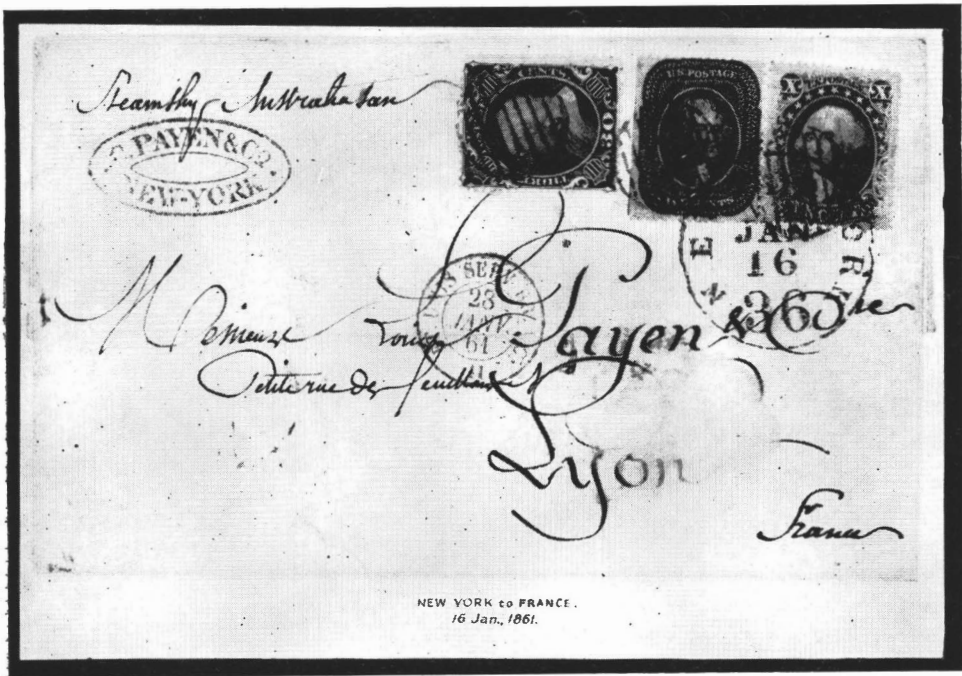 Steamship Australasian
PAYEN & Co.
NEW-YORK.
CENTS
30
U.S. POSTAGE
X X
NEW YORK
JAN
16
360
28
JANV
61
Messieurs Louis Payen & Cie
Petite rue des Feuillants
Lyon
France
NEW YORK to FRANCE.
16 Jan., 1861.